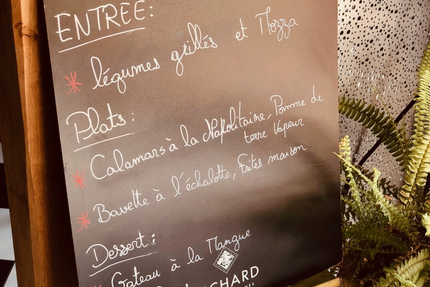 ENTRÉE:
légumes grillés et Mozza
Plats:
Calamars à la Napolitaine, Pomme de
terre vapeur
Bavette à l'échalotte, frites maison
Dessert:
Gateau à la Mangue